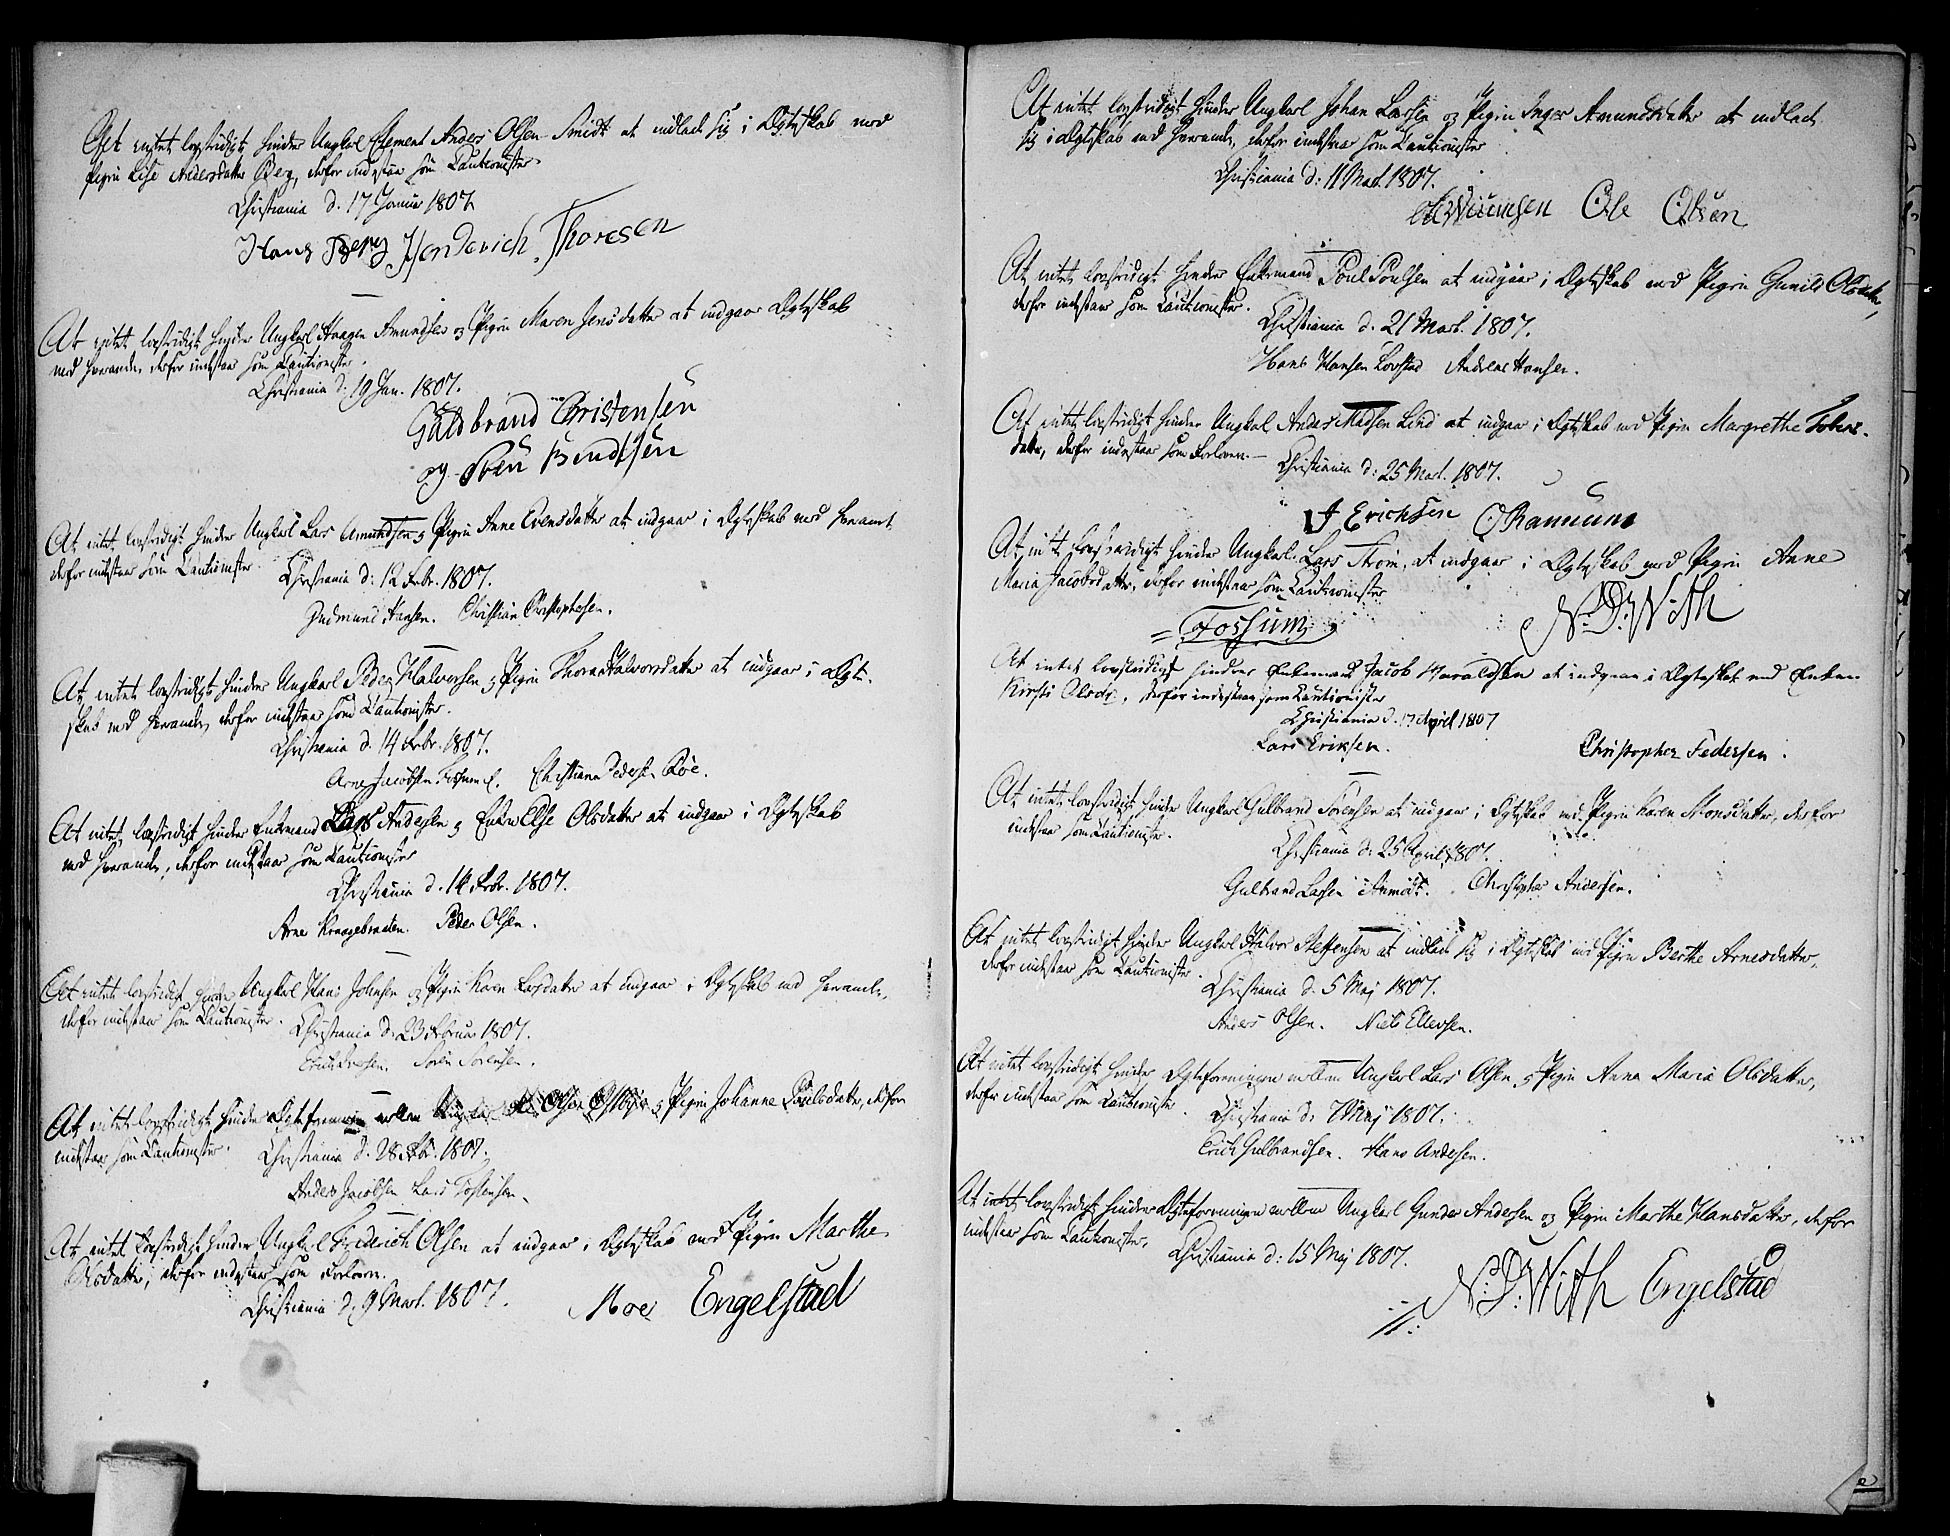 At intet lovstridigt hinder Ungkarl Clement Anders Olsen Smidt at indlade sig i Ægteskab med
Pigen Lise Andersdatter Berg, derfor indestaar som Cautionister
Christiania d. 17 Januar 1807
Hans Berg Henderich Thoresen
At intet lovstridigt hinder Ungkarl Haagen Amundsen og Pigen Maren Jensdatter at indgaae Ægteskab
med hverandre, derfor indestaar som Cautionister.
Christiania d. 19 Jan. 1807.
Guldbrand Christensen
og Sven Bendtsen
At intet lovstridigt hinder Ungkarl Lars Amundsen og Pigen Anne Evensdatter at indgaae i Ægteskab med hverandre
derfor indestaar som Cautionister.
Christiania d: 12 Febr. 1807.
Gudmund Hansen. Christian Christophersen.
At intet lovstridigt hinder Ungkarl Peder Halvorsen og Pigen Thorea Halvorsdatter at indgaae i Ægte-
skab med hverandre, derfor indestaar som Cautionister.
Christiania d. 14 Febr. 1807.
Arne Jacobsen Fossum E. Christian Pedersen Roe.
At intet lovstridigt hinder Enkemand Lars Andersen og Enken Else Olsdatter at indgaae i Ægteskab
med hverandre, derfor indestaar som Cautionister
Christiania d. 14 Febr. 1807.
Arne Kraagebraaten. Peder Olsen.
At intet lovstridigt hinder Ungkarl Hans Johnsen og Pigen Karen Larsdatter at indgaae i Ægteskab med hverandre,
derfor indestaar som Cautionister.
Christiania d. 23 Februar 1807.
Erich Soren Sorensen.
At intet lovstridigt hinder Ægteforeningen mellem Ungkarl Ole Olsen og Pigen Johanne Poulsdatter, derfor
indestaar som Cautionister.
Christiania d. 28 Febr. 1807.
Anders Jacobsen Lars Tostensen
At intet lovstridigt hinder Ungkarl Friderich Olsen at indgaae i Ægteskab med Pigen Marthe
Olsdatter, derfor indestaar som Forlovere.
Christiania d. 9 Mart. 1807.
Moe Engelstad
At intet lovstridigt hinder Ungkarl Johan Larsen og Pigen Inger Amundsdatter at indlade
sig i Ægteskab med hverandre, derfor indestaar som Cautionister
Christiania d: 11 Mart. 1807.
Ole Olsen
At intet lovstridigt hinder Enkemand Poul Poulsen at indgaae i Ægteskab med Pigen Gunild Olsdatter,
derfor indestaar som Cautionister.
Christiania d. 21 Mart. 1807.
Hans Hansen Lovstad Andreas Hansen.
At intet lovstridigt hinder Ungkarl Anders Madsen Lind at indgaae i Ægteskab med Pigen Margrethe Johns-
datter, derfor indestaar som Forlovere.
Christiania d: 25 Mart. 1807.
J Erichsen O Ramum
At intet lovstridigt hinder Ungkarl Lars Strøm, at indgaae i Ægteskab med Pigen Anne
Maria Jacobsdatter, derfor indestaar som Cautionister
Fossum N: D: With
At intet lovstridigt hindrer Enkemand Jacob Haraldsen at indgaae i Ægteskab med Enken
Kirsti Olsdr., derfor indestaar som Cautionister
Christiania d. 17 April 1807
Lars Eriksen. Christopher Pedersen.
At intet lovstridigt hinder Ungkarl Gulbrand Sorensen at indgaae i Ægteskab med Pigen Karen Monsdatter, derfor
indestaar som Cautionister.
Christiania d: 25 April 1807.
Gulbrand Larsen Christopher Andersen.
At intet lovstridigt hinder Ungkarl Halvor Steffensen at indlade sig i Ægteskab med Pigen Berthe Arnesdatter,
derfor indestaar som Cautionister.
Christiania d. 5 Maj 1807.
Anders Olsen. Niels Ellevsen.
At intet lovstridigt hinder Ægteforeningen mellem Ungkarl Lars Olsen og Pigen Anna Maria Olsdatter,
derfor indestaar som Cautionister.
Christiania d. 7 Maj 1807.
Erich Gulbrandsen. Hans Andersen.
At intet lovstridigt hinder Ægteforeningen mellem Ungkarl Gunder Andersen og Pigen Marthe Hansdatter, derfor
indestaar som Cautionister.
Christiania d: 15 Maj 1807.
N: D: With Engelstad